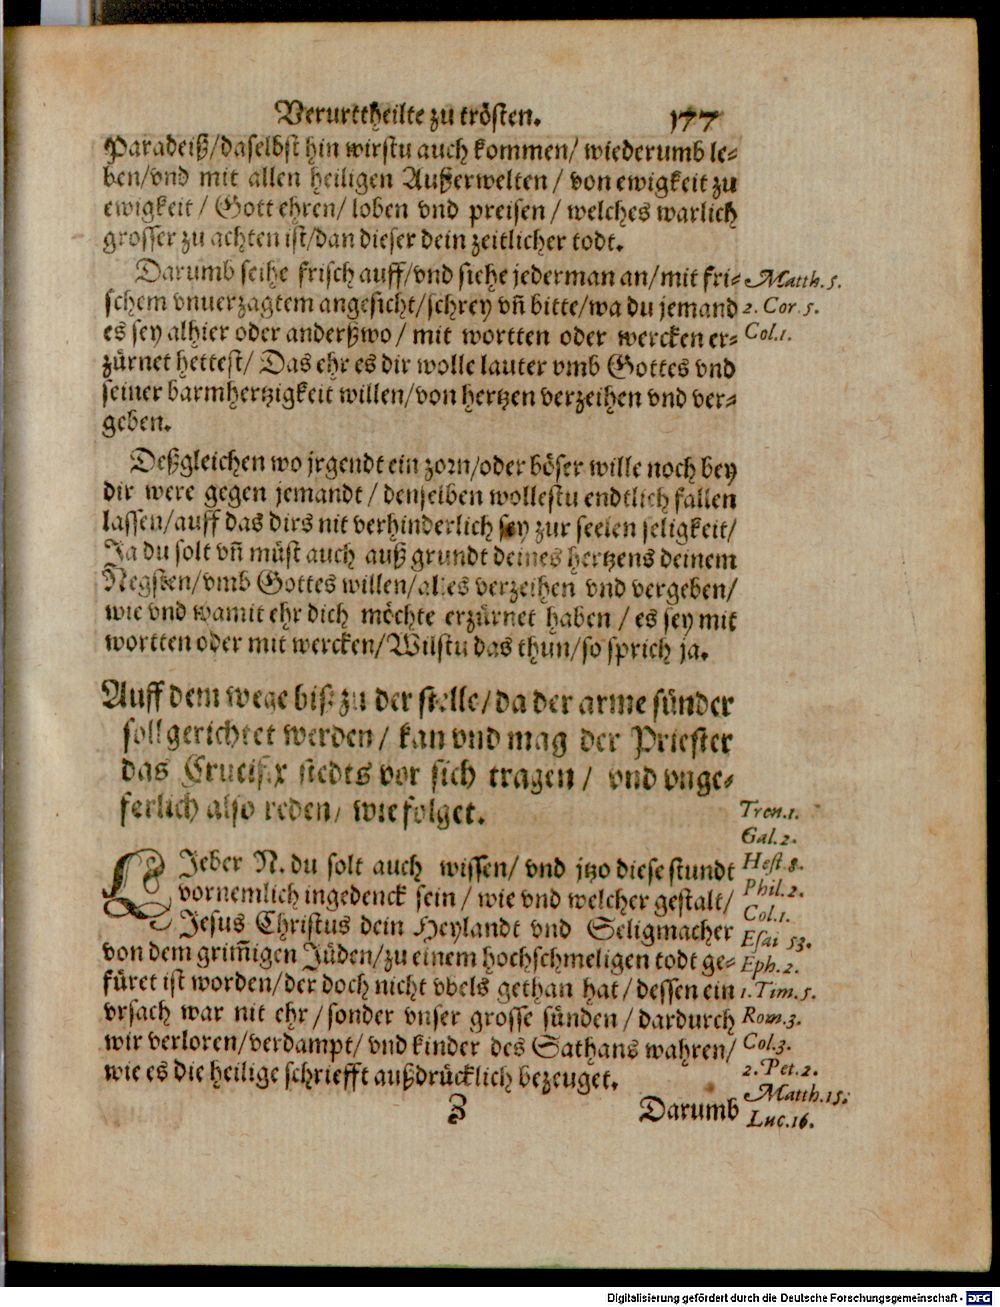 Verurttheilte zu trösten. 177
Paradeiß/daselbst hin wirstu auch kommen/ wiederumb le-
ben/vnd mit allen heiligen Außerwelten / von ewigkeit zu
ewigkeit / Gott ehren/ loben vnd preisen / welches warlich
grosser zu achten ist/dan dieser dein zeitlicher todt.
Darumb seihe frisch auff/vnd siehe jederman an/mit fri- Matth. 5.
schem vnuerzagtem angesicht/schrey vn̄ bitte/wa du jemand 2. Cor. 5.
es sey alhier oder anderßwo / mit wortten oder wercken er- Col.1.
zürnet hettest/ Das ehr es dir wolle lauter vmb Gottes vnd
seiner barmhertzigkeit willen/von hertzen verzeihen vnd ver-
geben.
Deßgleichen wo jrgendt ein zorn/oder böser wille noch bey
dir were gegen jemandt / denselben wollestu endtlich fallen
lassen/auff das dirs nit verhinderlich sey zur seelen seligkeit/
Ja du solt vn̄ müst auch auß grundt deines hertzens deinem
Negsten/vmb Gottes willen/alles verzeihen vnd vergeben/
wie vnd wamit ehr dich möchte erzürnet haben / es sey mit
wortten oder mit wercken/Wilstu das thun/so sprich ja.
Auff dem wege biß zu der stelle/da der arme sünder
soll gerichtet werden/ kan vnd mag der Priester
das Crucifix stedts vor sich tragen / vnd vnge-
ferlich also reden/ wie folget.
Tren.1.
Gal.2.
LJeber N. du solt auch wissen/ vnd jtzo diese stundt Hest.8.
vornemlich ingedenck sein / wie vnd welcher gestalt/ Phil.2.
Jesus Christus dein Heylandt vnd Seligmacher Col.1.
von dem grim̄igen Jüden/zu einem hochschmeligen todt ge- Esai 53.
füret ist worden/der doch nicht vbels gethan hat/ dessen ein Eph.2.
vrsach war nit ehr / sonder vnser grosse sünden / dardurch 1.Tim.5.
wir verloren/verdampt/ vnd kinder des Sathans wahren/ Rom.3.
wie es die heilige schriefft außdrücklich bezeuget. Col.3.
2.Pet.2.
Matth.15.
Z Darumb Luc.16.
Digitalisierung gefördert durch die Deutsche Forschungsgemeinschaft - DFG